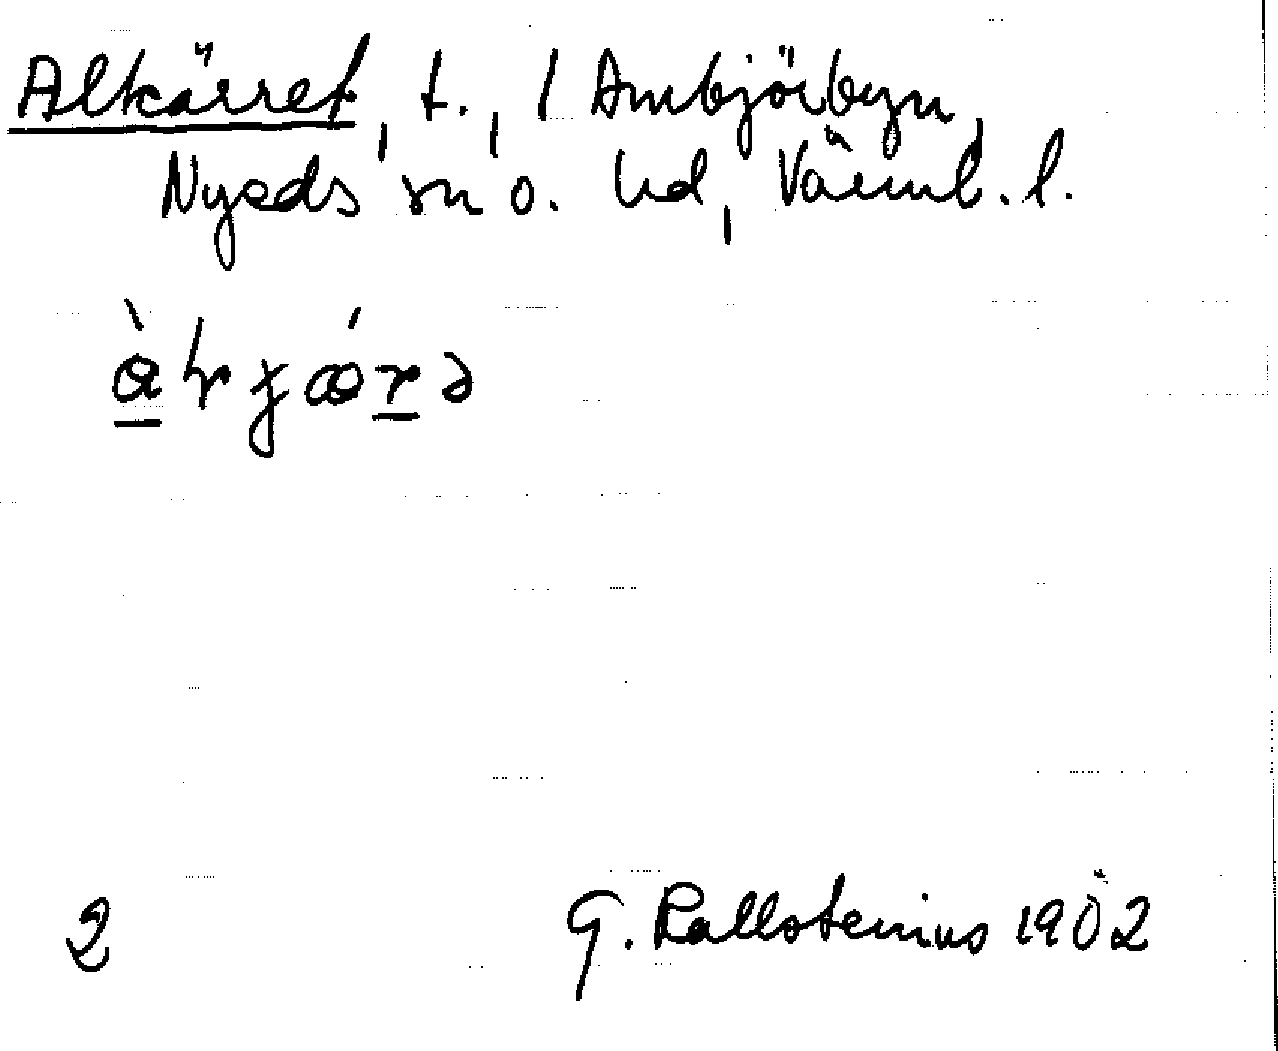 Alkärret, t., i Ambjörbyn,
Nyeds sn o. hd, Värml. l.
2
G. Kallstenius 1902